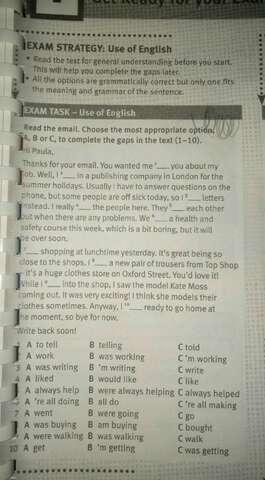 EXAM STRATEGY: Use of English
Read the text for general understanding before you start.
This will help you complete the gaps later.
All the options are grammatically correct but only one fits
the meaning and grammar of the sentence.
EXAM TASK – Use of English
Read the email. Choose the most appropriate option,
A, B or C, to complete the gaps in the text (1–10).
Hi Paula,
Thanks for your email. You wanted me 1___ you about my
job. Well, I 2___ in a publishing company in London for the
summer holidays. Usually I have to answer questions on the
phone, but some people are off sick today, so I 3___ letters
instead. I really 4___ the people here. They 5___ each other
out when there are any problems. We 6___ a health and
safety course this week, which is a bit boring, but it will
be over soon.
I 7___ shopping at lunchtime yesterday. It's great being so
close to the shops. I 8___ a new pair of trousers from Top Shop
it's a huge clothes store on Oxford Street. You'd love it!
While I 9___ into the shop, I saw the model Kate Moss
coming out. It was very exciting! I think she models their
clothes sometimes. Anyway, I 10___ ready to go home at
the moment, so bye for now.
Write back soon!
1 A to tell B telling C told
2 A work B was working C 'm working
3 A was writing B 'm writing C write
4 A liked B would like C like
5 A always help B were always helping C always helped
6 A 're all doing B all do C 're all making
7 A went B were going C go
8 A was buying B am buying C bought
9 A were walking B was walking C walk
10 A get B 'm getting C was getting